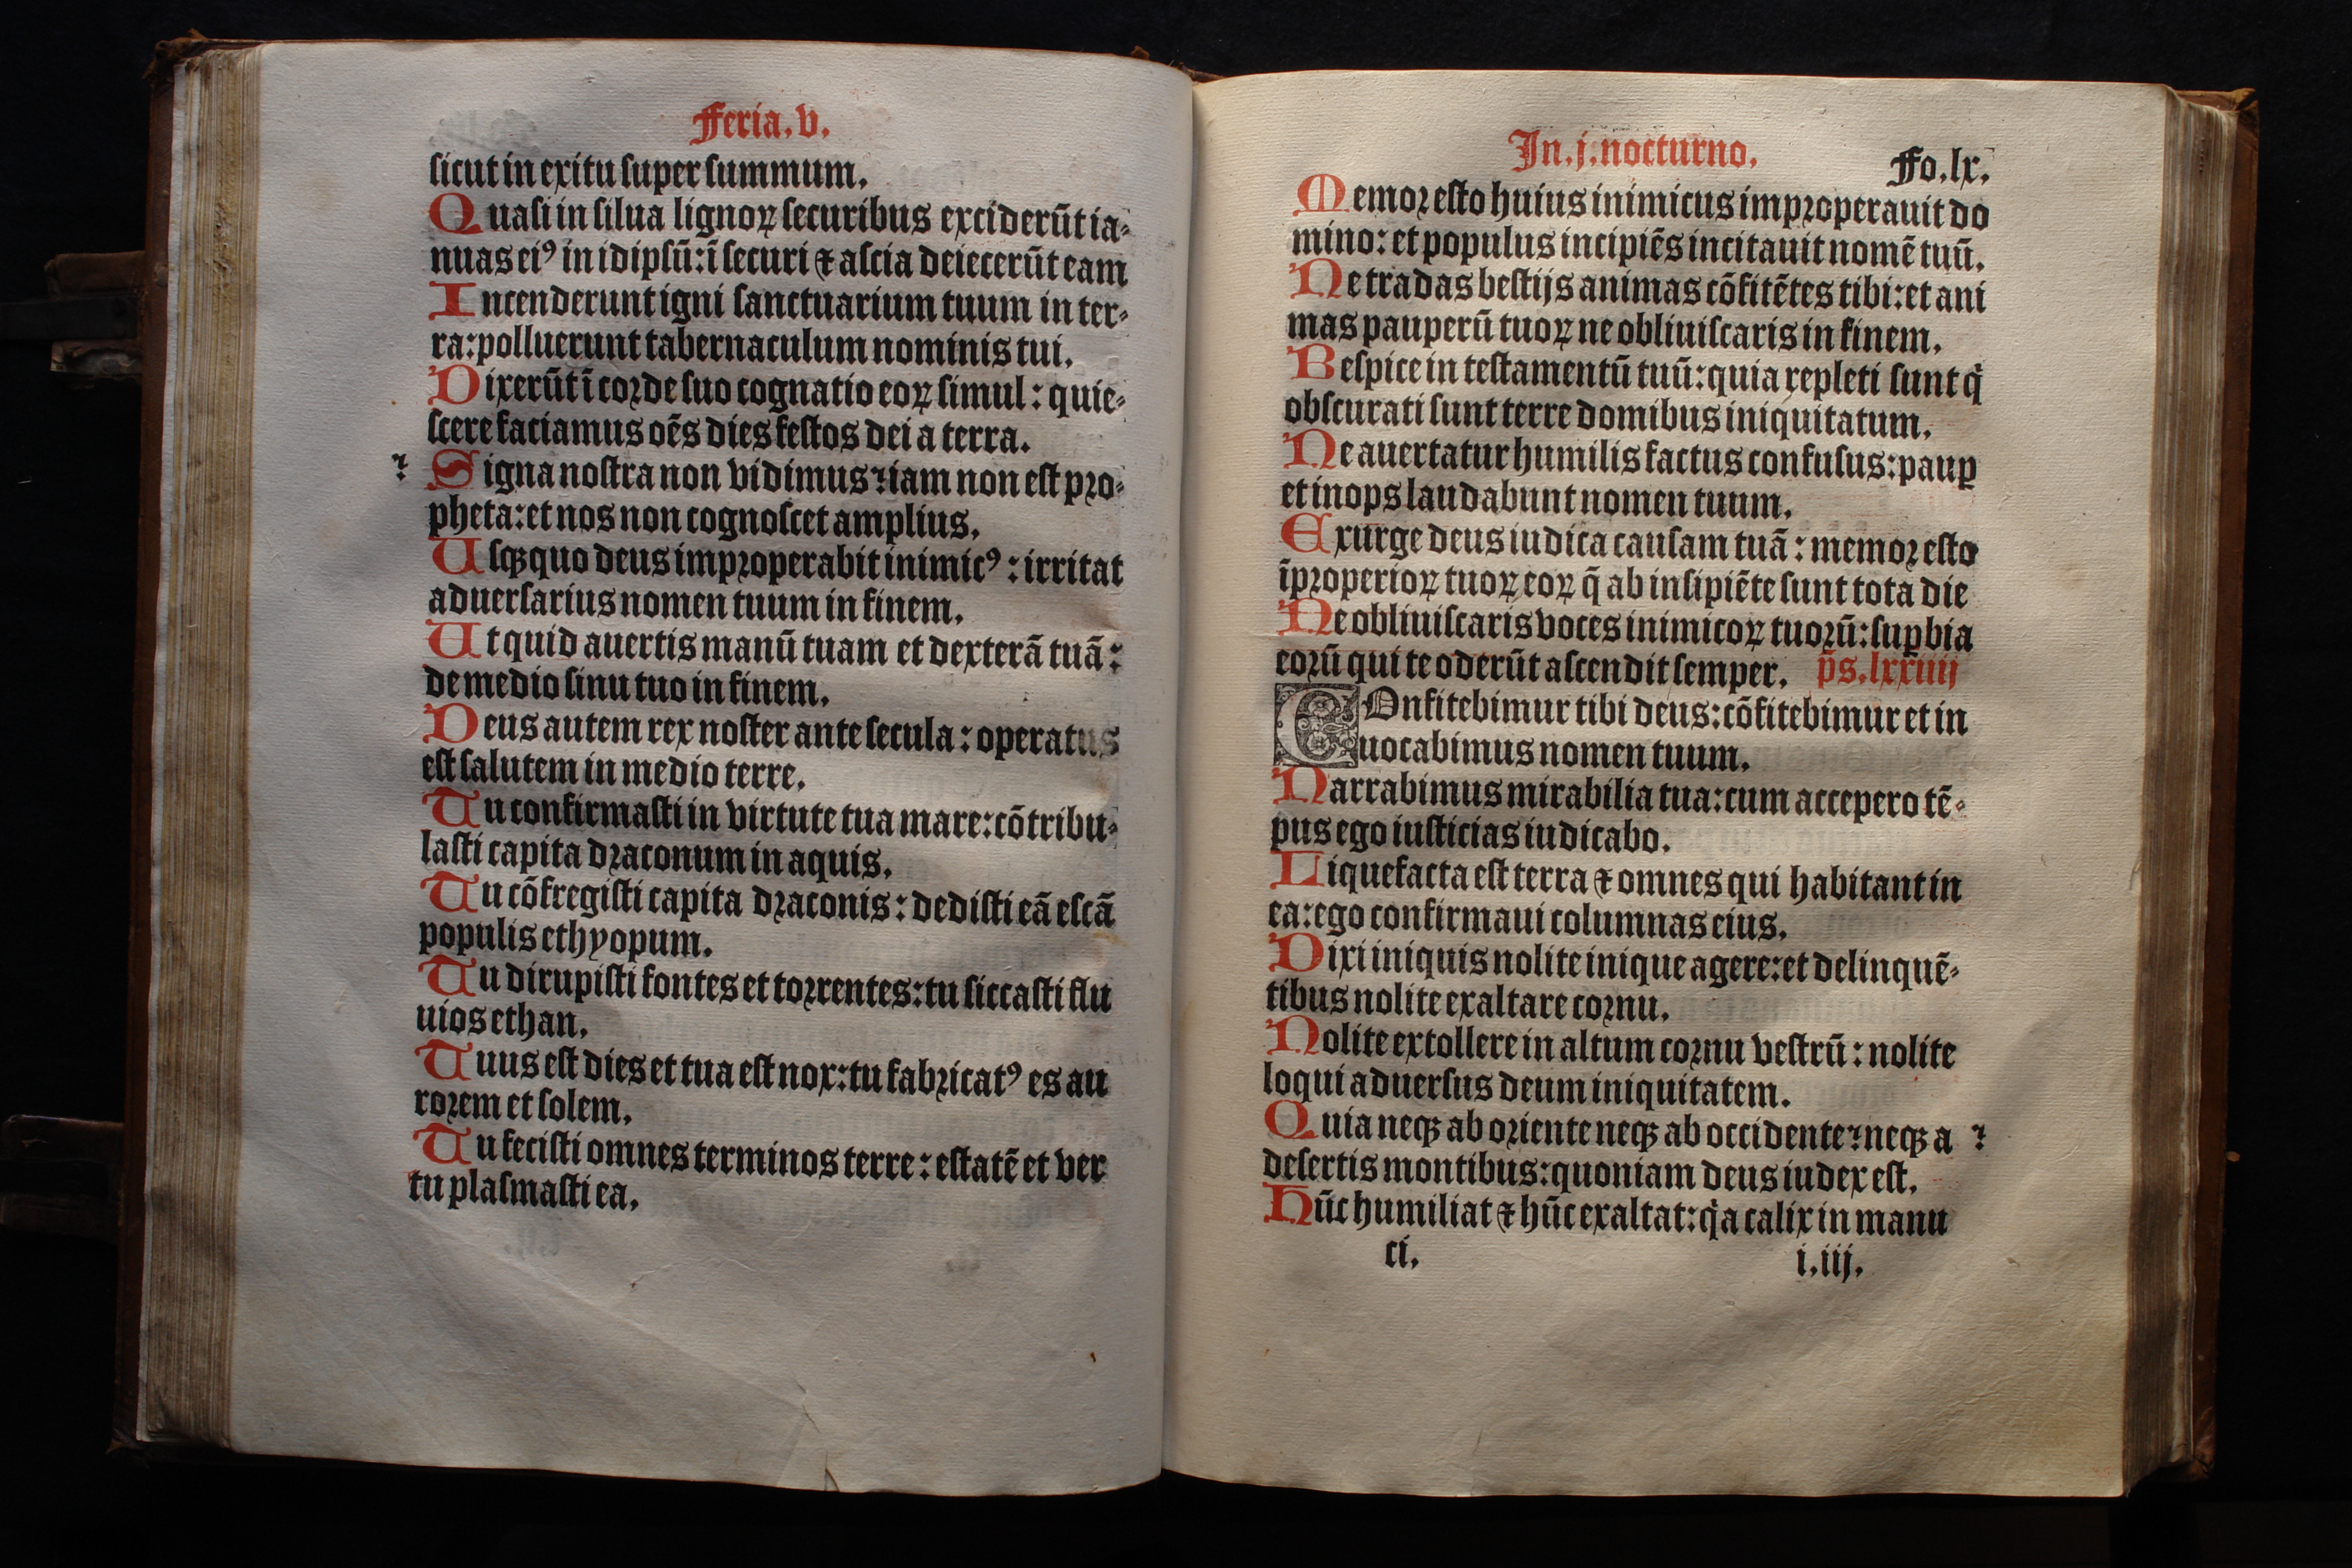 Feria. v.
sicut in exitu super summum.
Quasi in silua lignoꝝ securibus exciderūt ia⸗
nuas eiꝰ in idipsū: ī securi ⁊ ascia deiecerūt eam
Incenderunt igni sanctuarium tuum in ter⸗
ra: polluerunt tabernaculum nominis tui.
Dixerūt ī corde suo cognatio eoꝝ simul: quie⸗
scere faciamus oēs dies festos dei a terra.
Signa nostra non vidimus: iam non est pro⸗
pheta: et nos non cognoscet amplius.
Usqꝫ quo deus improperabit inimicꝰ: irritat
aduersarius nomen tuum in finem.
Ut quid auertis manū tuam et dexterā tuā:
de medio sinu tuo in finem.
Deus autem rex noster ante secula: operatus
est salutem in medio terre.
Tu confirmasti in virtute tua mare: cōtribu⸗
lasti capita draconum in aquis.
Tu cōfregisti capita draconis: dedisti eā escā
populis ethyopum.
Tu dirupisti fontes et torrentes: tu siccasti flu
uios ethan.
Tuus est dies et tua est nox: tu fabricatꝰ es au
rorem et solem.
Tu fecisti omnes terminos terre: estatē et ver
tu plasmasti ea.
In. j. nocturno. Fo. lx.
Memor esto huius inimicus improperauit do
mino: et populus incipiēs incitauit nomē tuū.
Ne tradas bestijs animas cōfitētes tibi: et ani
mas pauperū tuoꝝ ne obliuiscaris in finem.
Respice in testamentū tuū: quia repleti sunt q̇
obscurati sunt terre domibus iniquitatum.
Ne auertatur humilis factus confusus: paup̱
et inops laudabunt nomen tuum.
Exurge deus iudica causam tuā: memor esto
īproperioꝝ tuoꝝ eoꝝ q̄ ab insipiēte sunt tota die
Ne obliuiscaris voces inimicoꝝ tuorū: sup̱bia
eorū qui te oderūt ascendit semper. p̄s. lxxiiij
COnfitebimur tibi deus: cōfitebimur et in
uocabimus nomen tuum.
Narrabimus mirabilia tua: cum accepero tē⸗
pus ego iusticias iudicabo.
Liquefacta est terra ⁊ omnes qui habitant in
ea: ego confirmaui columnas eius.
Dixi iniquis nolite inique agere: et delinquē⸗
tibus nolite exaltare cornu.
Nolite extollere in altum cornu vestrū: nolite
loqui aduersus deum iniquitatem.
Quia neqꝫ ab oriente neqꝫ ab occidente: neqꝫ a
desertis montibus: quoniam deus iudex est.
Hūc humiliat ⁊ hūc exaltat: q̇a calix in manu
ci. i. iij.